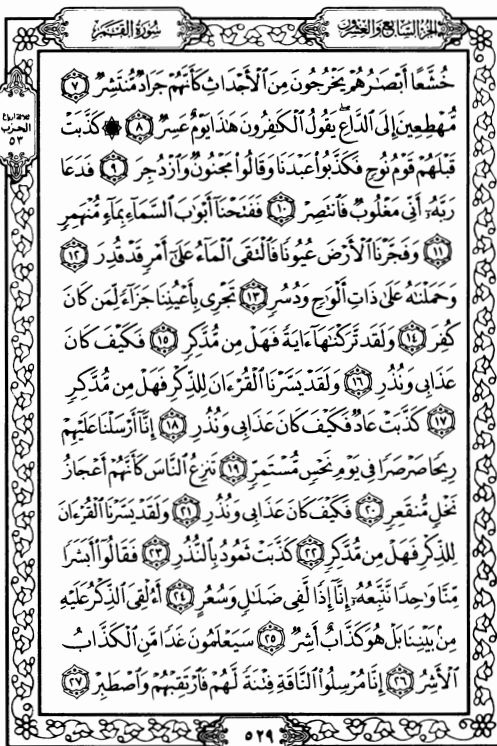 الجزء السابع والعشرون
سورة القمر
ثلاثة أرباع
الحزب
٥٣
خُشَّعًا أَبْصَٰرُهُمْ يَخْرُجُونَ مِنَ ٱلْأَجْدَاثِ كَأَنَّهُمْ جَرَادٌ مُّنتَشِرٌ ۝٧
مُّهْطِعِينَ إِلَى ٱلدَّاعِ ۖ يَقُولُ ٱلْكَٰفِرُونَ هَٰذَا يَوْمٌ عَسِرٌ ۝٨ ۞ كَذَّبَتْ
قَبْلَهُمْ قَوْمُ نُوحٍ فَكَذَّبُوا۟ عَبْدَنَا وَقَالُوا۟ مَجْنُونٌ وَٱزْدُجِرَ ۝٩ فَدَعَا
رَبَّهُۥٓ أَنِّى مَغْلُوبٌ فَٱنتَصِرْ ۝١٠ فَفَتَحْنَآ أَبْوَٰبَ ٱلسَّمَآءِ بِمَآءٍ مُّنْهَمِرٍ
۝١١ وَفَجَّرْنَا ٱلْأَرْضَ عُيُونًا فَٱلْتَقَى ٱلْمَآءُ عَلَىٰٓ أَمْرٍ قَدْ قُدِرَ ۝١٢
وَحَمَلْنَٰهُ عَلَىٰ ذَاتِ أَلْوَٰحٍ وَدُسُرٍ ۝١٣ تَجْرِى بِأَعْيُنِنَا جَزَآءً لِّمَن كَانَ
كُفِرَ ۝١٤ وَلَقَد تَّرَكْنَٰهَآ ءَايَةً فَهَلْ مِن مُّدَّكِرٍ ۝١٥ فَكَيْفَ كَانَ
عَذَابِى وَنُذُرِ ۝١٦ وَلَقَدْ يَسَّرْنَا ٱلْقُرْءَانَ لِلذِّكْرِ فَهَلْ مِن مُّدَّكِرٍ
۝١٧ كَذَّبَتْ عَادٌ فَكَيْفَ كَانَ عَذَابِى وَنُذُرِ ۝١٨ إِنَّآ أَرْسَلْنَا عَلَيْهِمْ
رِيحًا صَرْصَرًا فِى يَوْمِ نَحْسٍ مُّسْتَمِرٍّ ۝١٩ تَنزِعُ ٱلنَّاسَ كَأَنَّهُمْ أَعْجَازُ
نَخْلٍ مُّنقَعِرٍ ۝٢٠ فَكَيْفَ كَانَ عَذَابِى وَنُذُرِ ۝٢١ وَلَقَدْ يَسَّرْنَا ٱلْقُرْءَانَ
لِلذِّكْرِ فَهَلْ مِن مُّدَّكِرٍ ۝٢٢ كَذَّبَتْ ثَمُودُ بِٱلنُّذُرِ ۝٢٣ فَقَالُوٓا۟ أَبَشَرًا
مِّنَّا وَٰحِدًا نَّتَّبِعُهُۥٓ إِنَّآ إِذًا لَّفِى ضَلَٰلٍ وَسُعُرٍ ۝٢٤ أَءُلْقِىَ ٱلذِّكْرُ عَلَيْهِ
مِنۢ بَيْنِنَا بَلْ هُوَ كَذَّابٌ أَشِرٌ ۝٢٥ سَيَعْلَمُونَ غَدًا مَّنِ ٱلْكَذَّابُ
ٱلْأَشِرُ ۝٢٦ إِنَّا مُرْسِلُوا۟ ٱلنَّاقَةِ فِتْنَةً لَّهُمْ فَٱرْتَقِبْهُمْ وَٱصْطَبِرْ ۝٢٧
٥٢٩